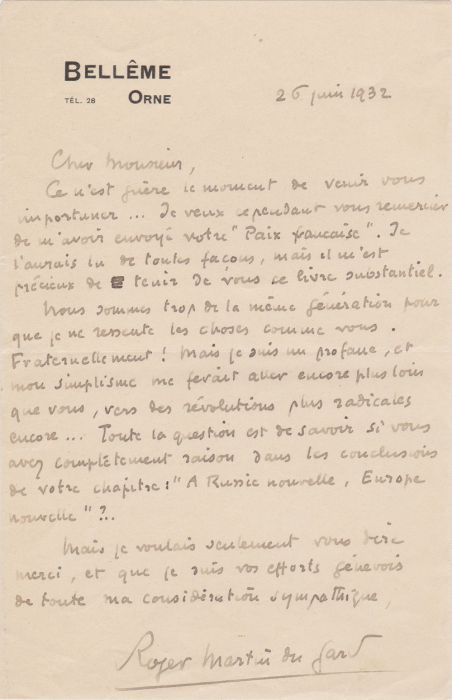 BELLÊME
TÉL. 28 ORNE
26 juin 1932
Cher Monsieur,
Ce n'est guère le moment de venir vous
importuner ... Je veux cependant vous remercier
de m'avoir envoyé votre "Paix française". Je
l'aurais lu de toutes façons, mais il m'est
précieux de tenir de vous ce livre substantiel.
Nous sommes trop de la même génération pour
que je ne ressente les choses comme vous.
Fraternellement ! Mais je suis un profane, et
mon simplisme me ferait aller encore plus loin
que vous, vers des révolutions plus radicales
encore ... Toute la question est de savoir si vous
avez complètement raison dans les conclusions
de votre chapitre : "A Russie nouvelle, Europe
nouvelle" ?..
Mais je voulais seulement vous dire
merci, et que je suis vos efforts génevois
de toute ma considération sympathique,
Roger Martin du Gard